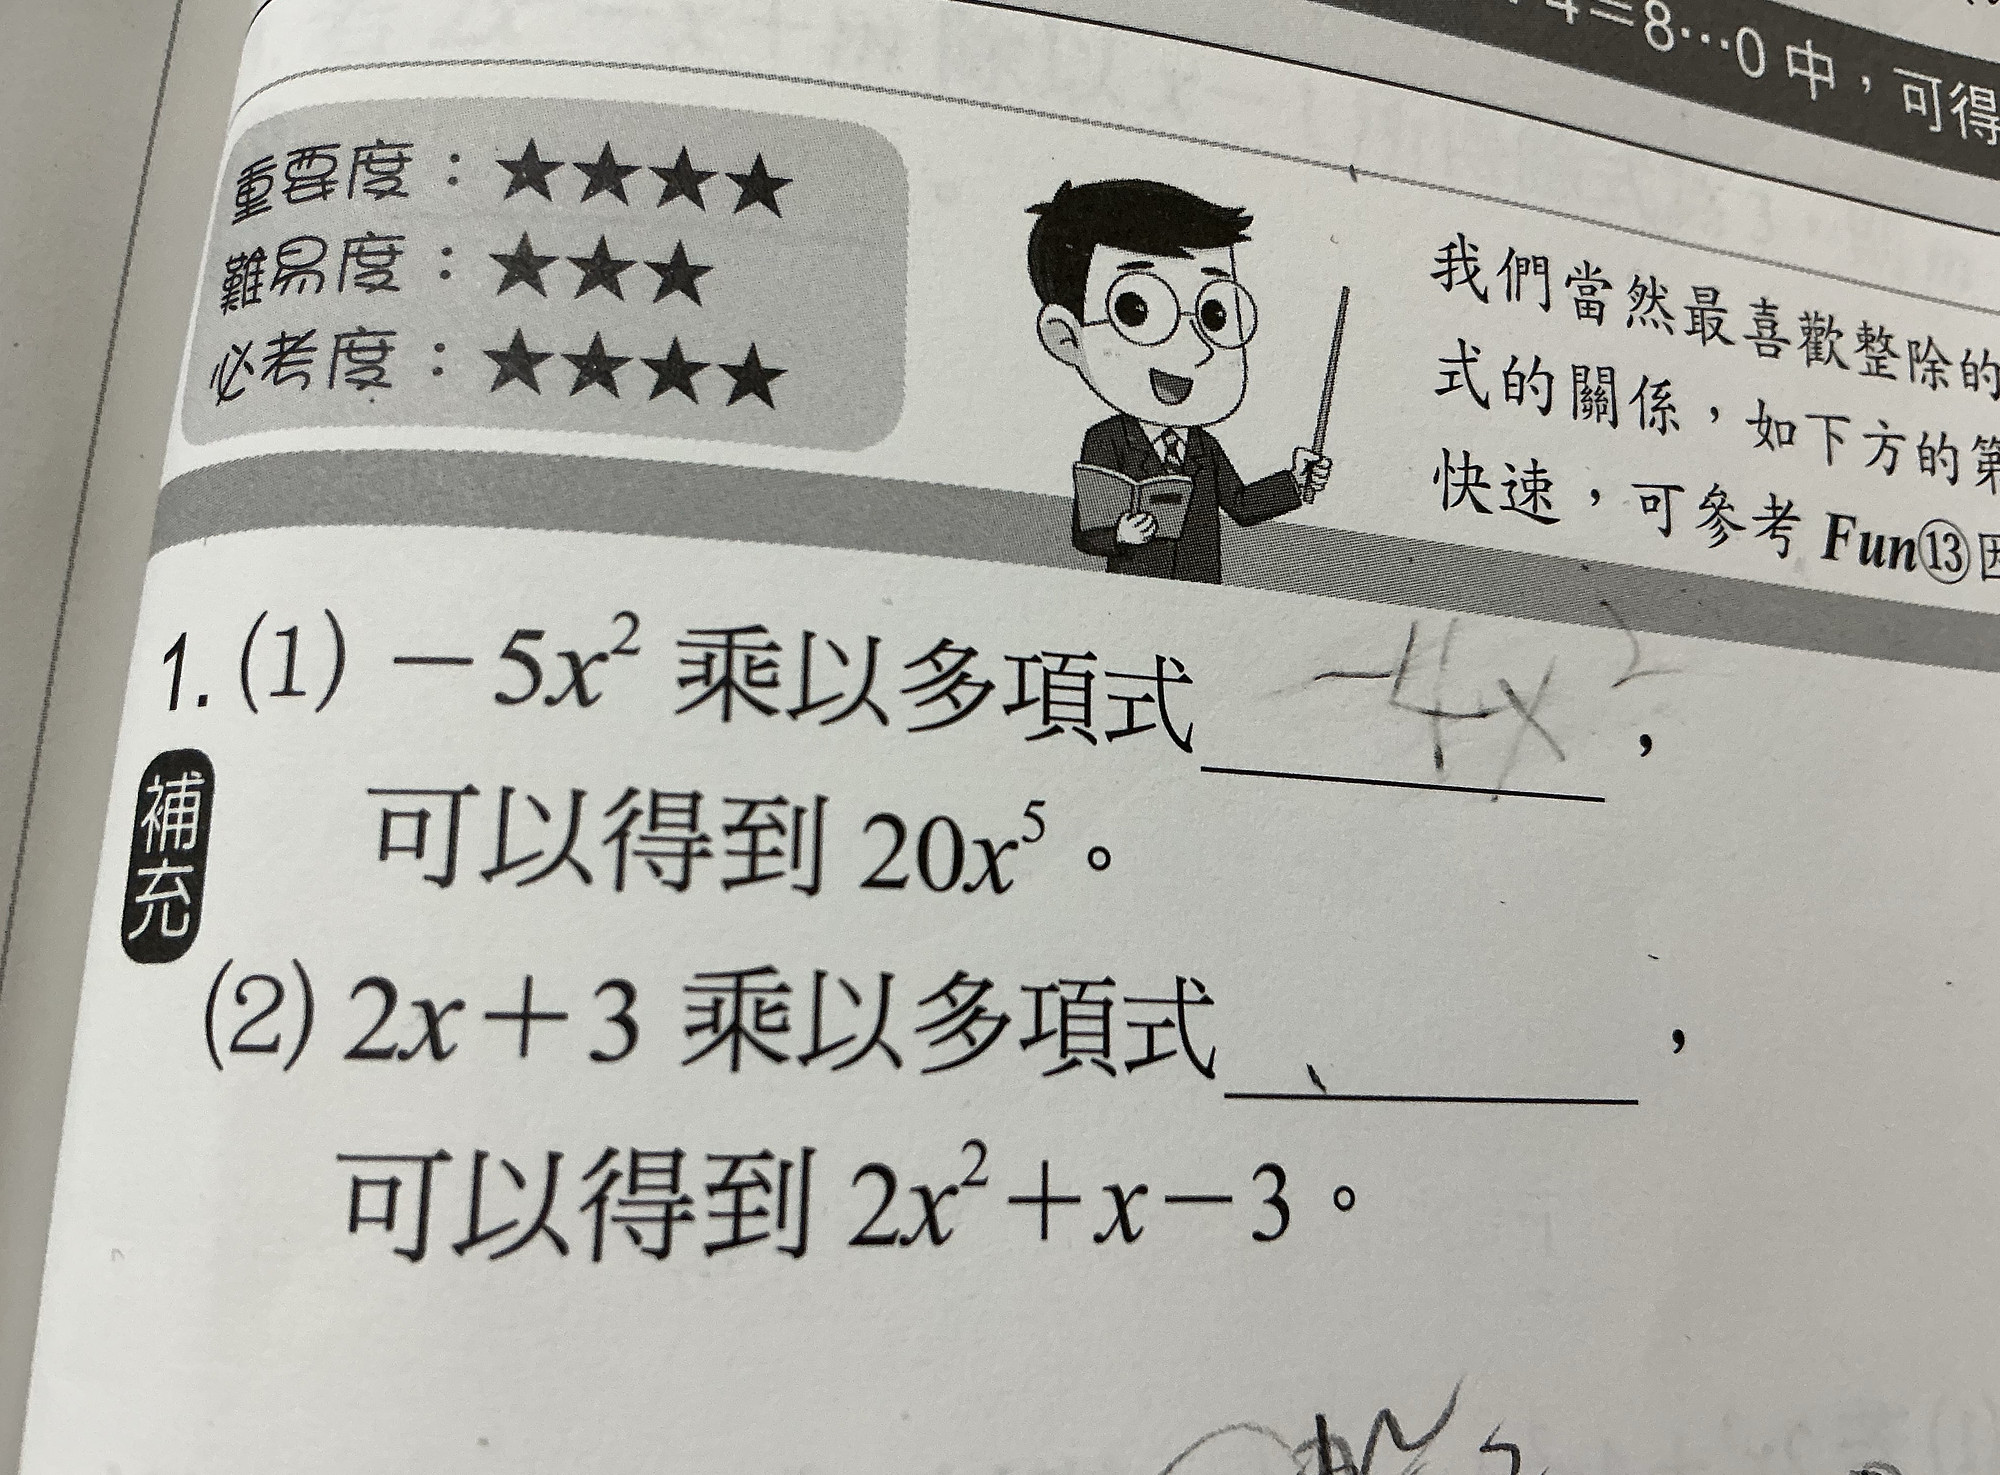 4=8…0 中，可得
重要度：★★★★
難易度：★★★
必考度：★★★★
我們當然最喜歡整除的
式的關係，如下方的第
快速，可參考 Fun⑬因
1. (1) －5x² 乘以多項式 －4x² ，
補充
可以得到 20x⁵。
(2) 2x＋3 乘以多項式＿＿＿＿，
可以得到 2x²＋x－3。